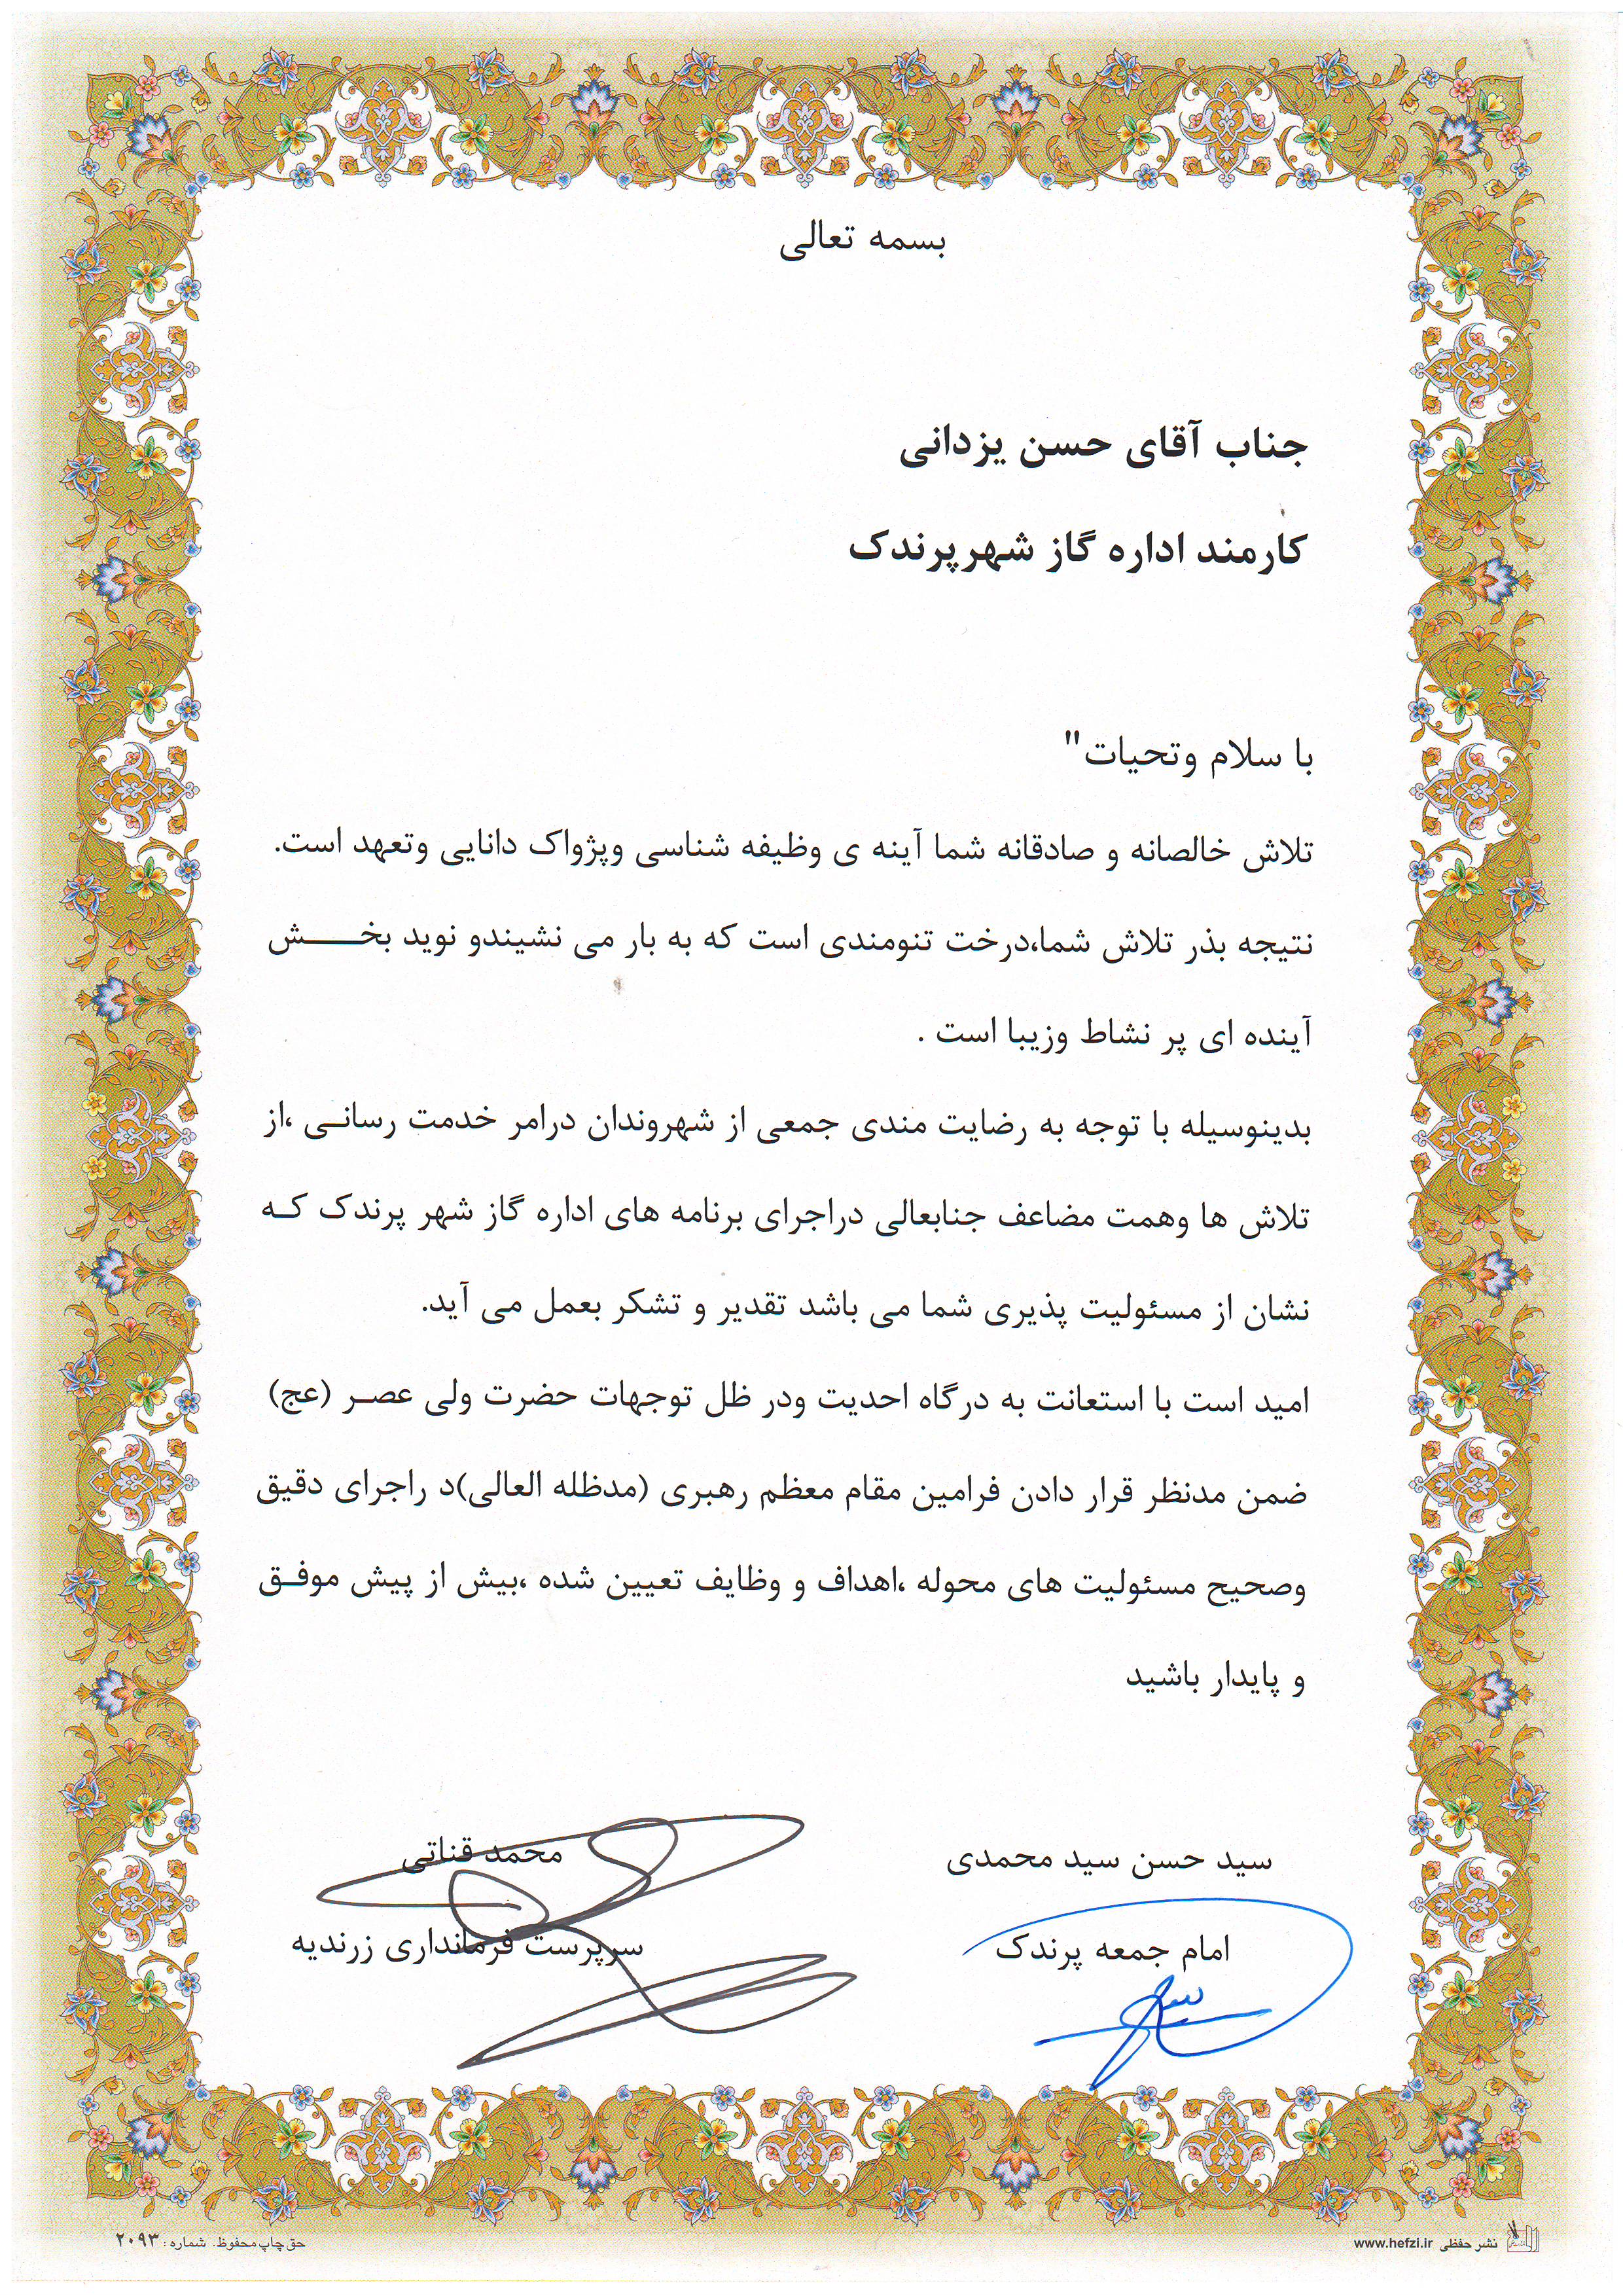 بسمه تعالی
جناب آقای حسن یزدانی
کارمند اداره گاز شهرپرندک
با سلام وتحیات"
تلاش خالصانه و صادقانه شما آینه ی وظیفه شناسی وپژواک دانایی وتعهد است.
نتیجه بذر تلاش شما،درخت تنومندی است که به بار می نشیندو نوید بخـــــش
آینده ای پر نشاط وزیبا است .
بدینوسیله با توجه به رضایت مندی جمعی از شهروندان درامر خدمت رسانـی ،از
تلاش ها وهمت مضاعف جنابعالی دراجرای برنامه های اداره گاز شهر پرندک کـه
نشان از مسئولیت پذیری شما می باشد تقدیر و تشکر بعمل می آید.
امید است با استعانت به درگاه احدیت ودر ظل توجهات حضرت ولی عصـر (عج)
ضمن مدنظر قرار دادن فرامین مقام معظم رهبری (مدظله العالی)د راجرای دقیق
وصحیح مسئولیت های محوله ،اهداف و وظایف تعیین شده ،بیش از پیش موفـق
و پایدار باشید
سید حسن سید محمدی
محمد قناتی
امام جمعه پرندک
سرپرست فرمانداری زرندیه
نشر حفظی www.hefzi.ir
حق چاپ محفوظ. شماره : ۲۰۹۳